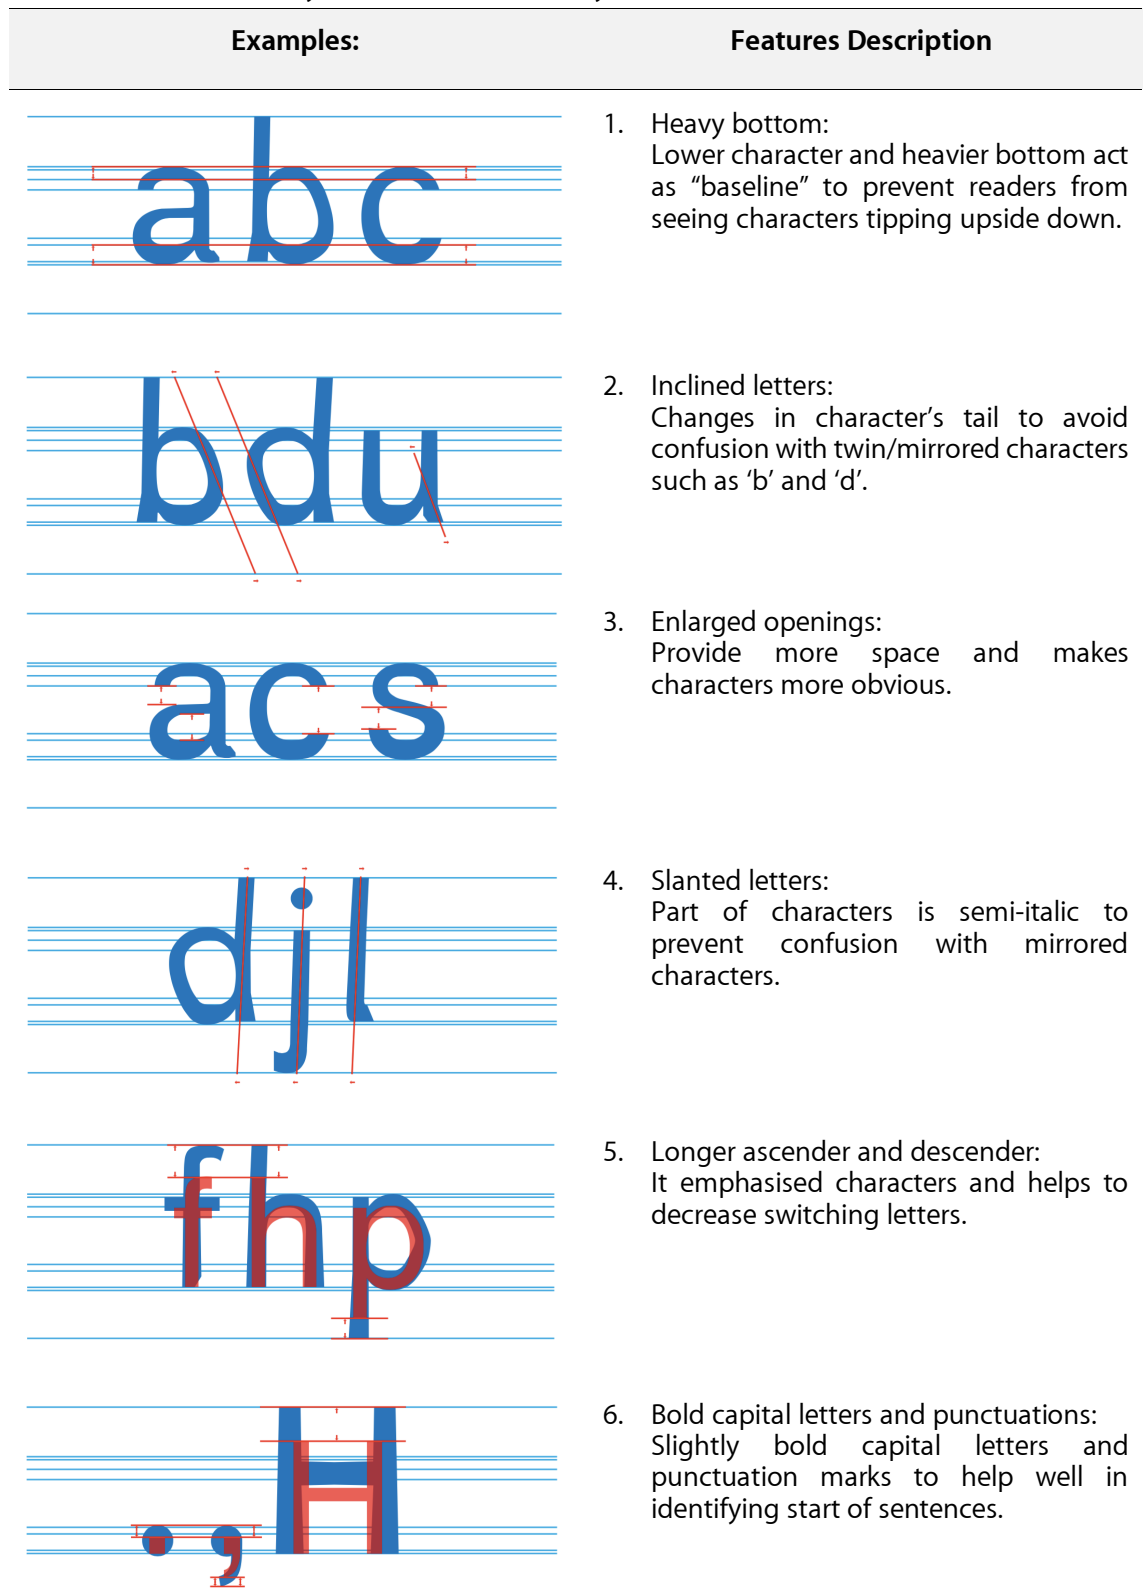 Examples:
Features Description
a b c
1. Heavy bottom:
Lower character and heavier bottom act
as “baseline” to prevent readers from
seeing characters tipping upside down.
b d u
2. Inclined letters:
Changes in character’s tail to avoid
confusion with twin/mirrored characters
such as ‘b’ and ‘d’.
a c s
3. Enlarged openings:
Provide more space and makes
characters more obvious.
d j l
4. Slanted letters:
Part of characters is semi-italic to
prevent confusion with mirrored
characters.
f h p
5. Longer ascender and descender:
It emphasised characters and helps to
decrease switching letters.
. , H
6. Bold capital letters and punctuations:
Slightly bold capital letters and
punctuation marks to help well in
identifying start of sentences.